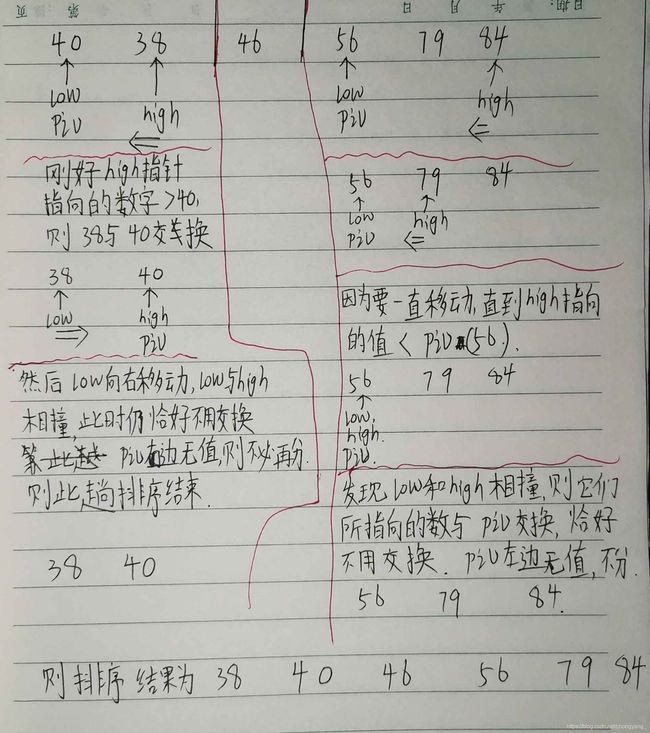 页 第 日 月 年 日期:
40 38 46
low high
piv
刚好high指针
指向的数字>40,
则 38与 40交换
38 40
low high
piv
然后 low向右移动,low与high
相撞,此时仍恰好不用交换
piv左边无值,则不必再分.
则此趟排序结束.
38 40
56 79 84
low high
piv
56 79 84
low high
piv
因为要一直移动,直到high指向
的值 < piv(56).
56 79 84
low,
high.
piv.
发现 low和high 相撞,则它们
所指向的数与 piv交换,恰好
不用交换. piv左边无值,不分.
56 79 84.
则排序 结果为 38 40 46 56 79 84